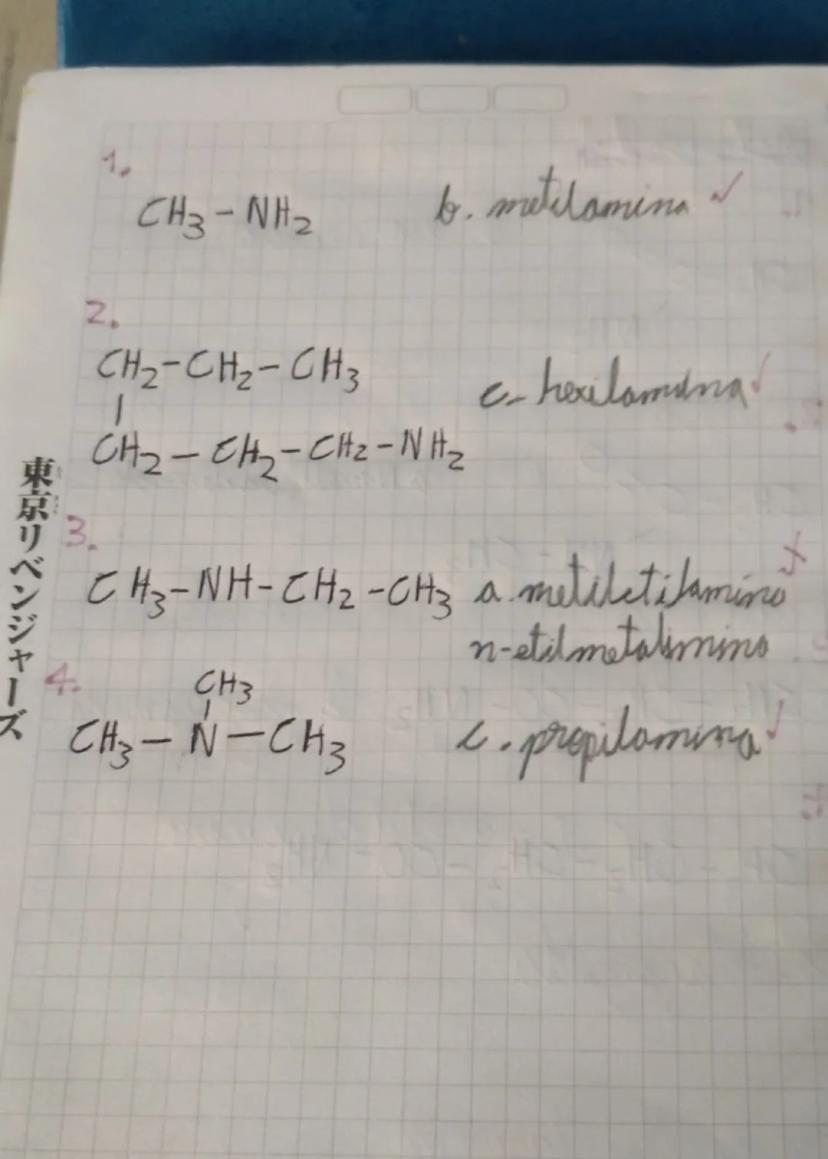 1.
CH3-NH2 b. metilamina ✓
2.
CH2-CH2-CH3
|
CH2-CH2-CH2-NH2 c- hexilamina ✓
3.
CH3-NH-CH2-CH3 a. metiletilamino
n-etilmetalimino
4.
CH3
|
CH3-N-CH3 c. propilamina ✓
東京リベンジャーズ